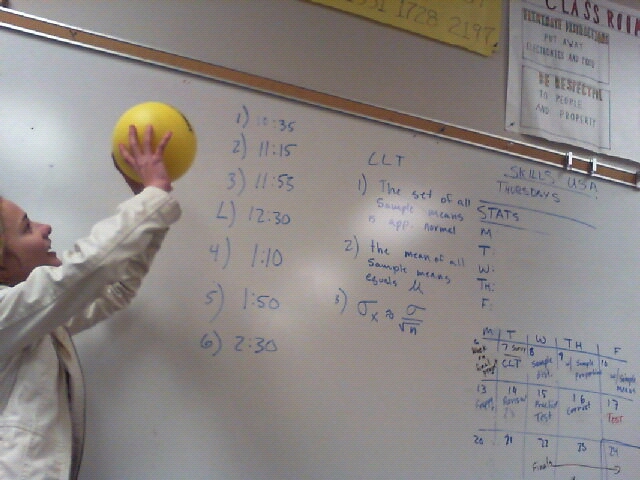 1331 1728 2197
CLASSROOM
PUT AWAY
ELECTRONICS AND FOOD
BE RESPECTFUL
TO PEOPLE
AND PROPERTY
1) 10:35
2) 11:15
3) 11:55
L) 12:30
4) 1:10
5) 1:50
6) 2:30
CLT
1) The set of all
Sample means
is app. normal
2) the mean of all
Sample means
equals μ
3) σx ≈ σ/√n
SKILLS USA
THURSDAYS
STATS
M
T:
W:
TH:
F:
M T W TH F
7 8 9 10
CLT Sample w/ sample w/ sample
dist. proportion means
13 14 15 16 17
Review Practice Correct TEST
Test
20 21 22 23 24
Finals